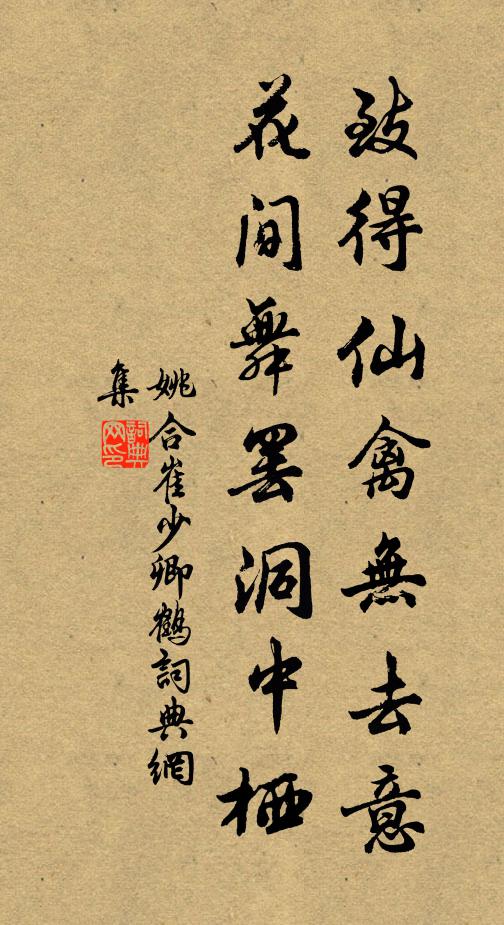 致得仙禽無去意
花间舞罢洞中栖
姚合崔少卿鶴詞典網
集
詞典网印